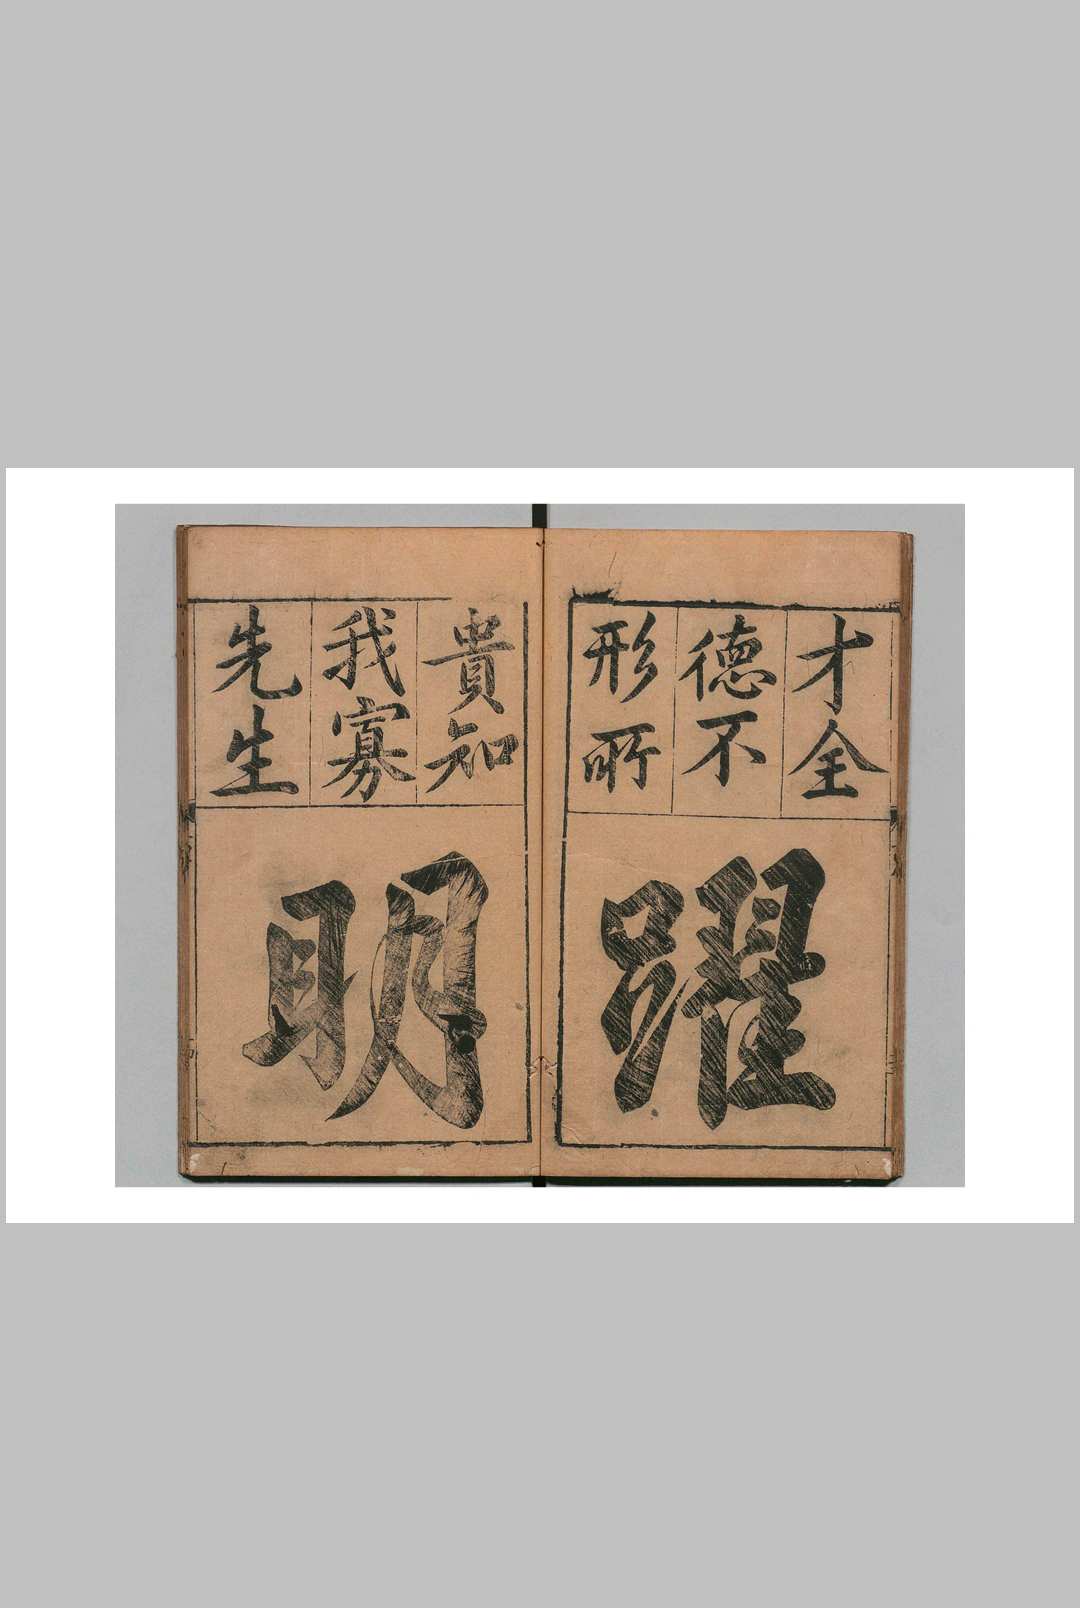 才全
德不
形所
躍
貴知
我寡
先生
明